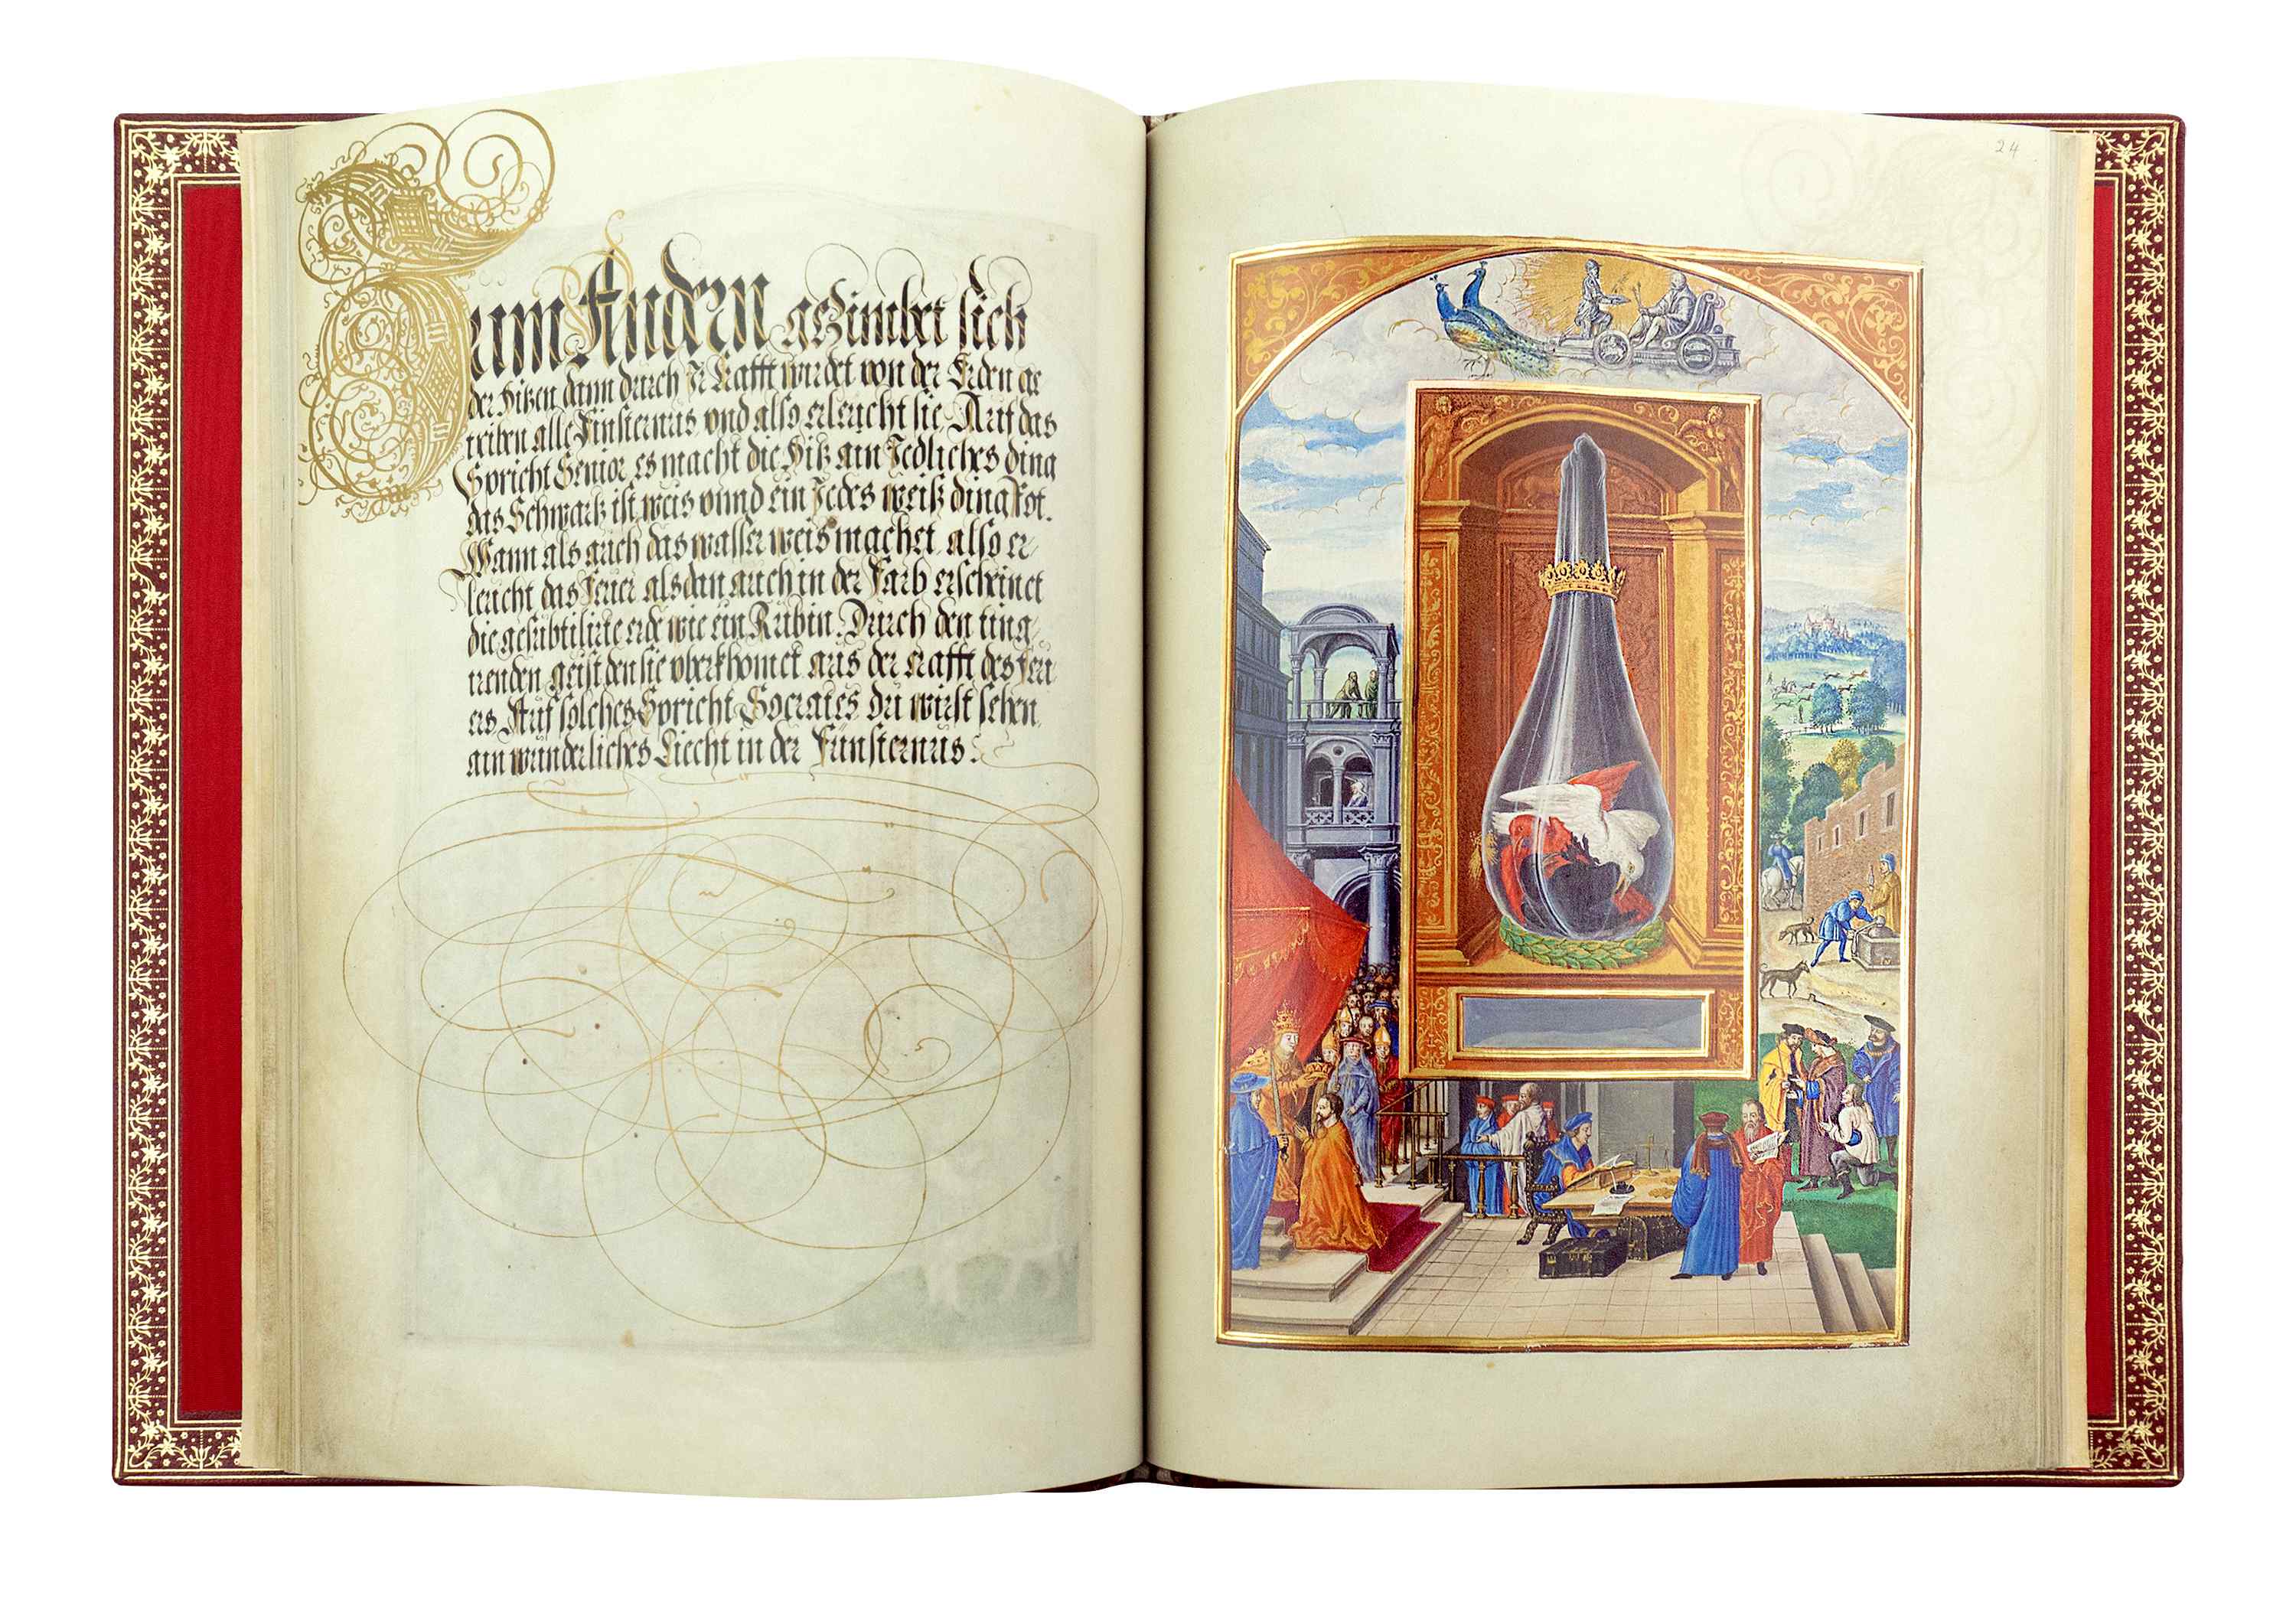 Zum Andern gezimbet sich
der Hitzen dann durch Ir Krafft wurdet von der Erden ge
triben alle Finsternus vnd also erleucht sie. Auf das
Spricht Senior es macht die Hitz ain Jedliches ding
das Schwartz ist weis vnnd ein Jedes weiß ding Rot.
Wann als auch das wasser weis machet, also er/
leucht das Feuer alsdan auch in der Farb erscheinet
die gesubtilirte erde wie ein Rubin. Durch den ting/
irenden geist den sie vberkhomet aus der Krafft des Feu
ers. Auf solches Spricht Socrates du wirst sehen
ain wunderliches Liecht in der Funsternus.
24